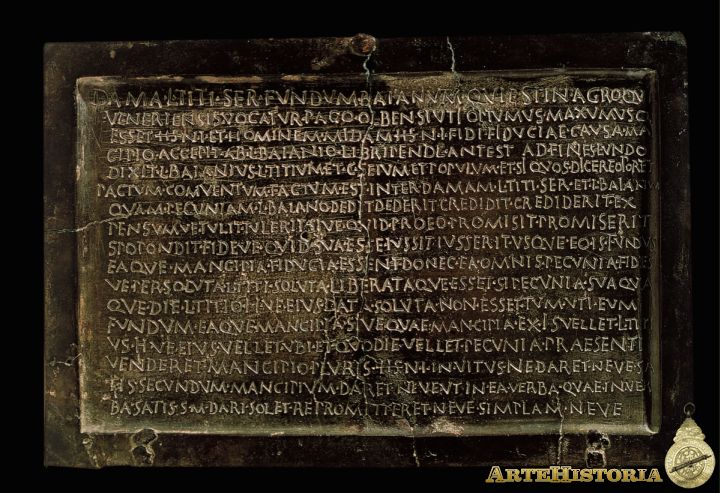 DAMA·L·TITI·SER·FUNDUM·BAIANUM·QUI·EST·IN·AGRO·QUI
VENERIENSIS·VOCATUR·PAGO·OLBENSI·UTI·OPTUMUS·MAXUMUSQ
ESSET·HS·N·I·ET·HOMINEM·MIDAM·HS·N·I·FIDI·FIDUCIAE·CAUSA·MAN
CIPIO·ACCEPIT·AB·L·BAIANIO·LIBRIPENDE·ANTEST·ADFINES·FUNDO
DIXIT·L·BAIANIUS·L·TITIUM·ET·C·SEIUM·ET·POPULUM·ET·SI·QUOS·DICERE·OPORTET
PACTUM·COMVENTUM·FACTUM·EST·INTER·DAMAM·L·TITI·SER·ET·L·BAIANIUM
QUAM·PECUNIAM·L·BAIANO·DEDIT·DEDERIT·CREDIDIT·CREDIDERIT·EX
PENSUMVE·TULIT·TULERIT·SIVE·QUID·PRO·EO·PROMISIT·PROMISERIT
SPOPONDIT·FIDEVE·QUID·SUA·ESSE·IUSSIT·IUSSERIT·USQUE·EO·IS·FUNDUS
EAQUE·MANCIPIA·FIDUCIA·ESSENT·DONEC·EA·OMNIS·PECUNIA·FIDES
VE·PERSOLUTA·L·TITI·SOLUTA·LIBERATAQUE·ESSET·SI·PECUNIA·SUA·QUA
QUE·DIE·L·TITIO·H·VE·EIUS·DATA·SOLUTA·NON·ESSET·TUM·UTI·EUM
FUNDUM·EAQUE·MANCIPIA·SIVE·QUAE·MANCIPIA·EX·IS·VELLET·L·TITI
US·H·VE·EIUS·VELLET·UBI·ET·QUO·DIE·VELLET·PECUNIA·PRAESENTI
VENDERET·MANCIPIO·PLURIS·HS·N·I·INVITUS·NE·DARET·NEVE·SA
TIS·SECUNDUM·MANCIPIUM·DARET·NEVE·UT·IN·EA·VERBA·QUAE·IN·VER
BA·SATIS·S·M·DARI·SOLET·REPROMITTERET·NEVE·SIMPLAM·NEVE
ARTEHISTORIA